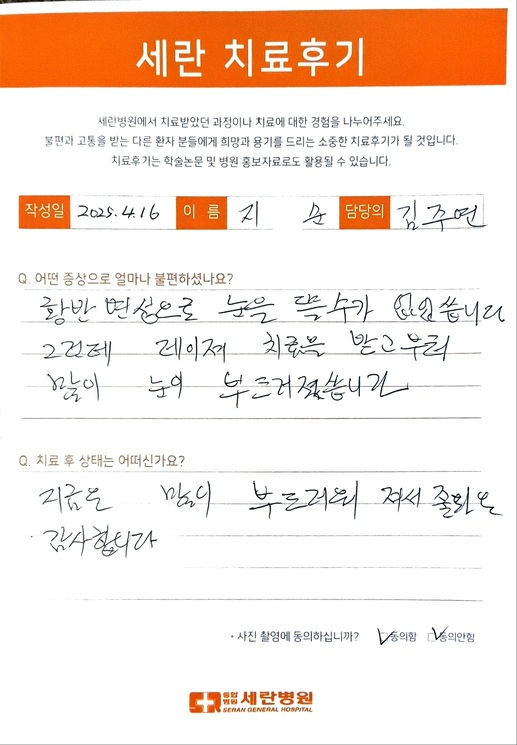 세란 치료후기
세란병원에서 치료받았던 과정이나 치료에 대한 경험을 나누어주세요.
불편과 고통을 받는 다른 환자 분들에게 희망과 용기를 드리는 소중한 치료후기가 될 것입니다.
치료후기는 학술논문 및 병원 홍보자료로도 활용될 수 있습니다.
작성일 2025.4.16 이 름 지 순 담당의 김주연
Q. 어떤 증상으로 얼마나 불편하셨나요?
황반변성으로 눈을 뜰수가 없있씁니다
그런데 레이져 치료을 받고부터
많이 눈이 부드러졌씁니다
Q. 치료 후 상태는 어떠신가요?
지금은 많이 부드러워 져서
감사합니다
• 사진 촬영에 동의하십니까? 동의함 동의안함
종합병원 세란병원
SERAN GENERAL HOSPITAL